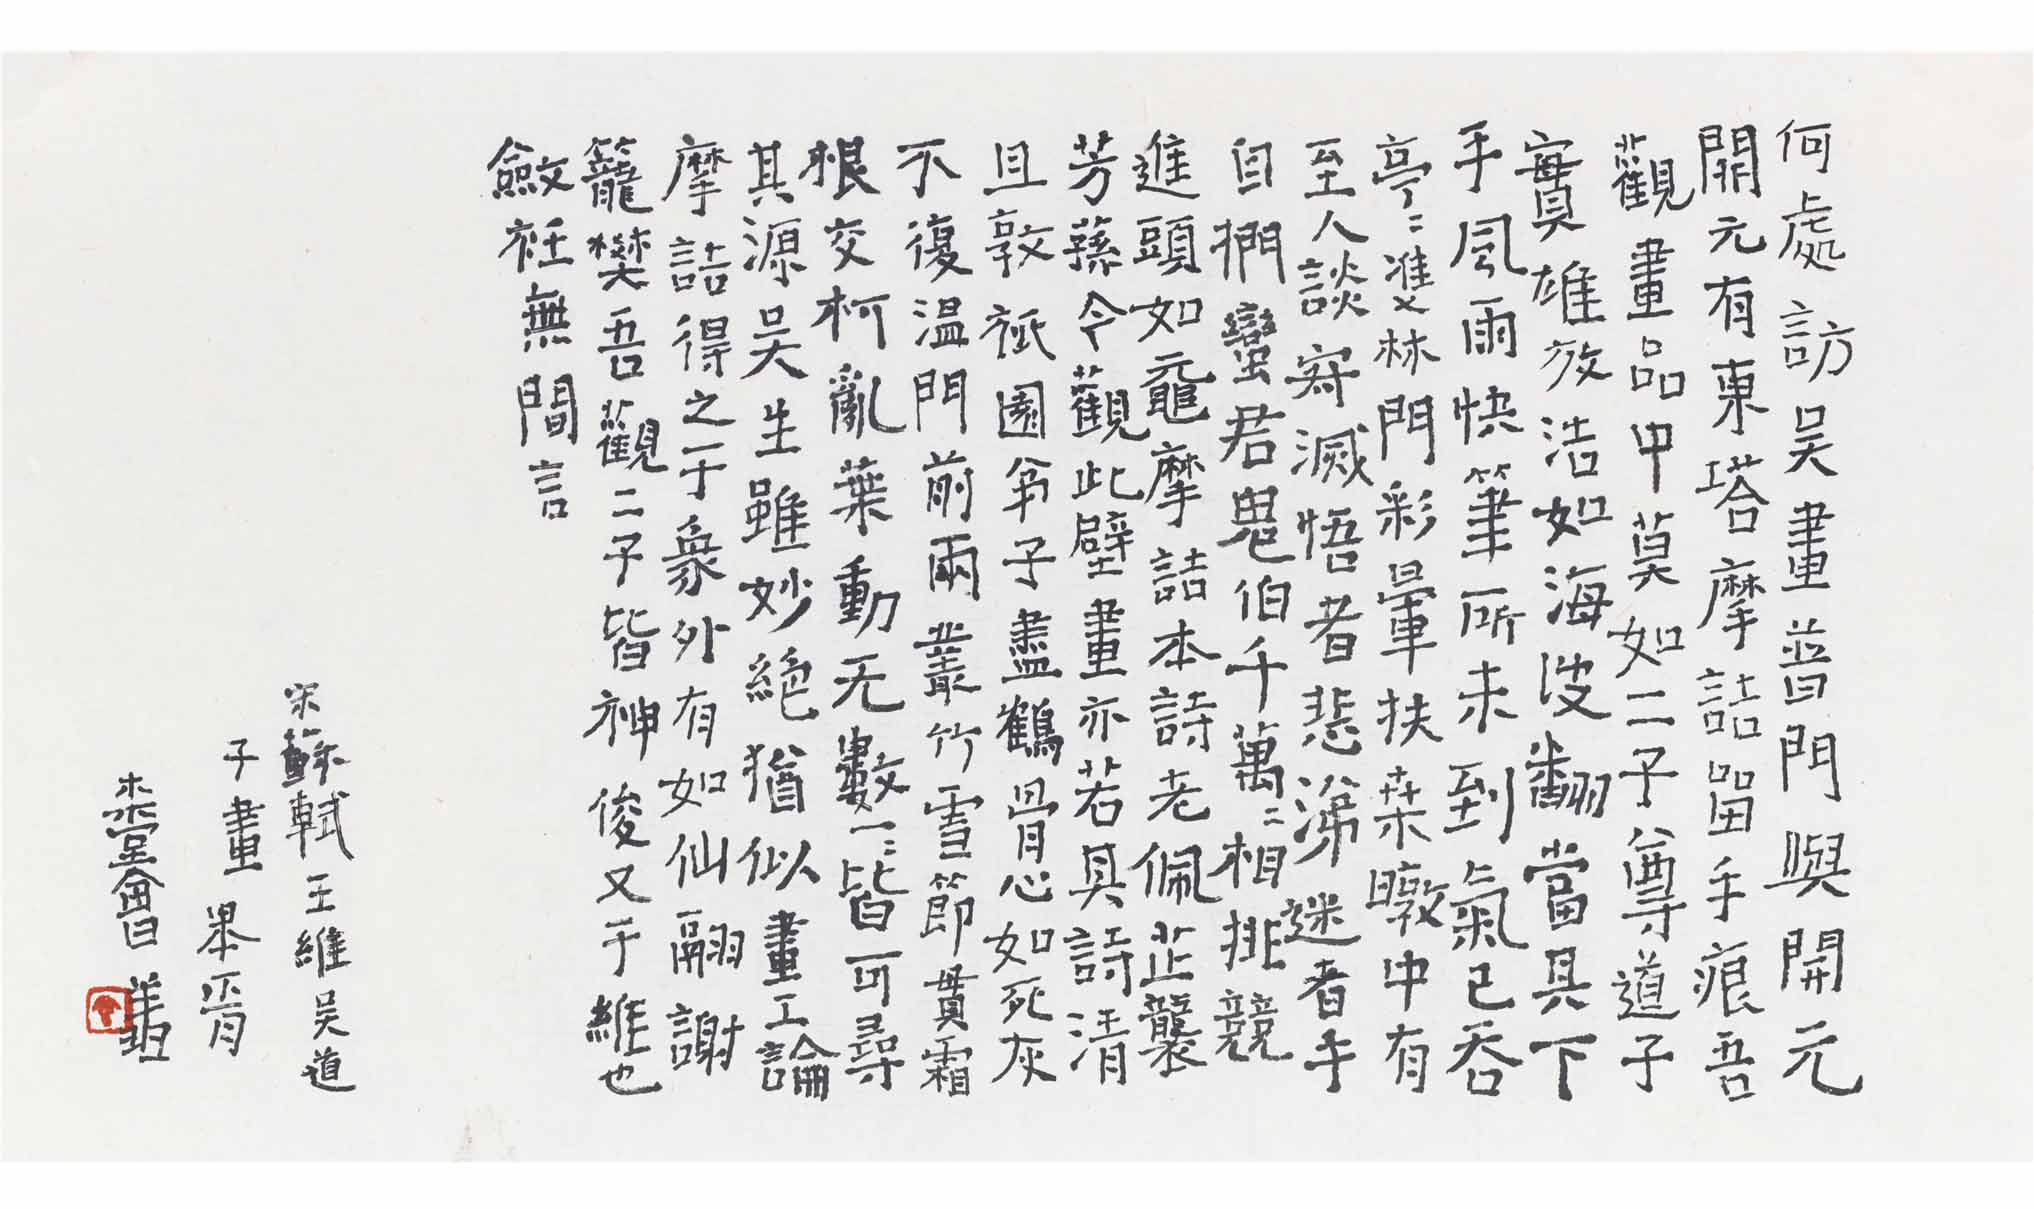 何處訪吴畫普門與開元
開元有東塔摩詰留手痕吾
觀畫品中莫如二子尊道子
實雄放浩如海波翻當其下
手風雨快筆所未到氣已吞
亭〻雙林門彩暈扶桒暾中有
至人談寂滅悟者悲涕迷者手
自捫蠻君鬼伯千萬〻相排競
進頭如黿摩詰本詩老佩芷襲
芳蓀今觀此壁畫亦若其詩清
且敦祇園弟子盡鶴骨心如死灰
不復温門前兩叢竹雪節貫霜
根交柯亂葉動无數一〻皆可尋
其源吴生雖妙絶猶似畫工論
摩詰得之于象外有如仙翮謝
籠樊吾觀二子皆神俊又于維也
斂衽無間言
宋蘇軾王維吴道
子畫